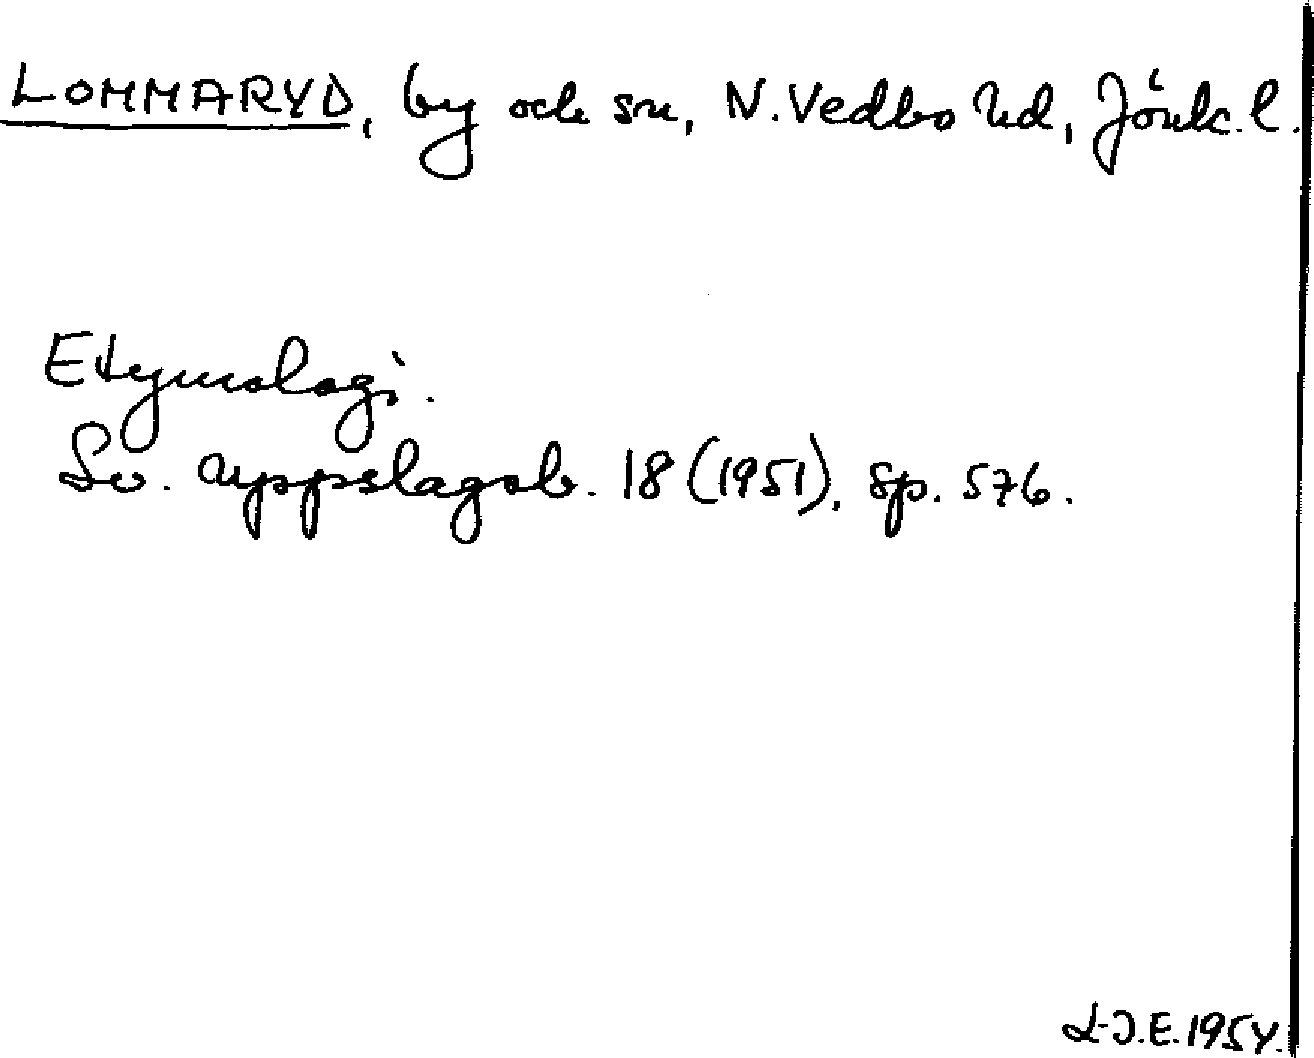 LOMMARYD, by och sn, N. Vedbo hd, Jönk. l.
Etymologi.
Sv. uppslagsb. 18 (1951), sp. 576.
L-J.E. 1954.